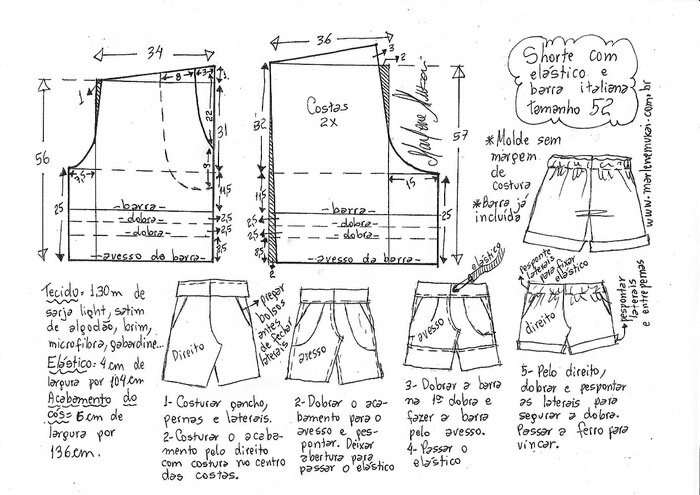 34
8
3
1
1
22
31
9
56
3,5
11,5
25
-barra-
-dobra-
-dobra-
2,5
2,5
-avesso da barra-
36
3
2
Costas
2X
32
57
15
11,5
25
25
-barra-
-dobra-
-dobra-
2,5
2,5
-avesso da barra-
2
Marlene Mukai
Shorte com
elástico e
barra italiana
tamanho 52
www.marlenemukai.com.br
*Molde sem
margem
de
costura
*Barra já
incluída
Tecido: 1,30m de
sarja light, satim
de algodão, brim,
microfibra, gabardine...
Elástico: 4cm de
largura por 104cm
Acabamento do
cós = 6cm de
largura por
136cm.
Direito
Pregar
bolsos
antes
de fechar
laterais
avesso
elástico
avesso
pesponte
laterais
para fixar
elástico
direito
pespontar
laterais
e entrepernas
1- Costurar gancho,
pernas e laterais.
2- Costurar o acaba-
mento pelo direito
com costura no centro
das costas.
2- Dobrar o aca-
bamento para o
avesso e pes-
pontar. Deixar
abertura para
passar o elástico
3- Dobrar a barra
na 1ª dobra e
fazer a barra
pelo avesso.
4- Passar o
elástico
5- Pelo direito,
dobrar e pespontar
as laterais para
segurar a dobra.
Passar a ferro para
vincar.